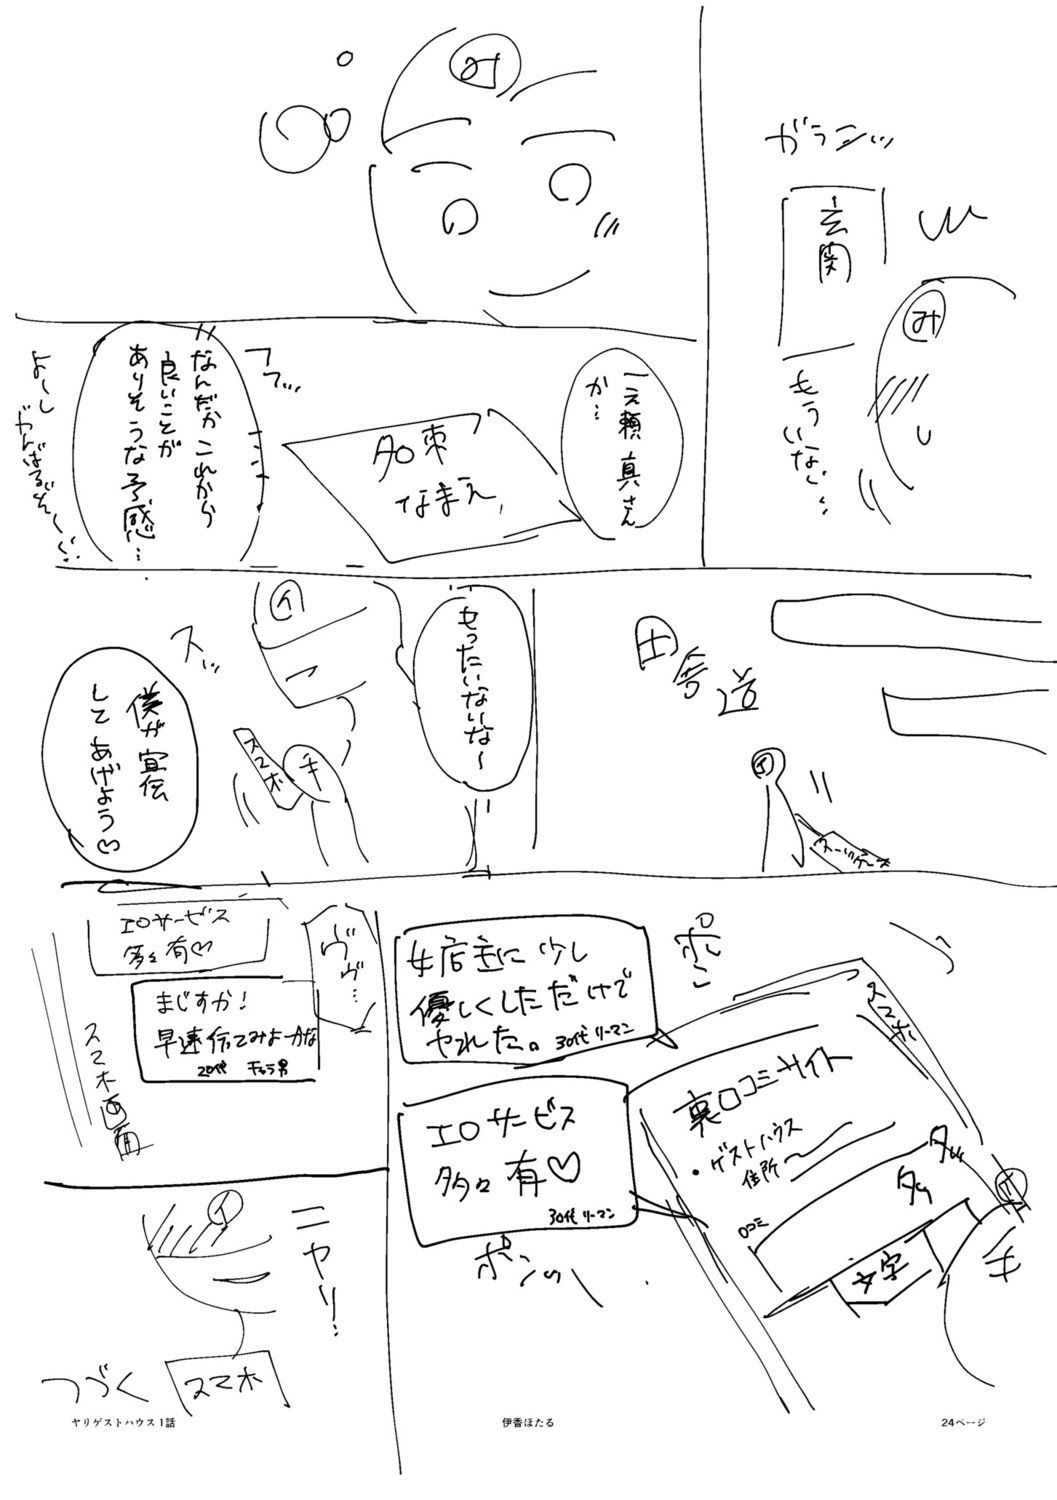 ガラン…
玄関
み
もういない…
み
一之瀬 真さん
か…
名刺
なまえ
フフ…
なんだか これから
良いことが
ありそうな予感…
よーし
がんばるぞ〜
田舎道
イ
スーツケース
もったいないな〜
イ
スッ
スマホ
手
僕が宣伝
して あげよう♡
ポン
スマホ
女店主に 少し
優しくしただけで
ヤれた。 30代 リーマン
裏口コミサイト
・ゲストハウス
住所〜
口コミ
タッ
タッ
文字
イ
手
エロサービス
多々有♡
30代 リーマン
ポンッ
ヴヴ…
エロサービス
多々有♡
まじすか!
早速行ってみよーかな
20代 チャラ男
スマホ画面
イ
ニヤリ!
スマホ
つづく
ヤリゲストハウス1話
伊香ほたる
24ページ